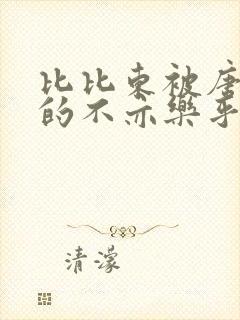 比比东被唐
的不亦乐乎
清濛